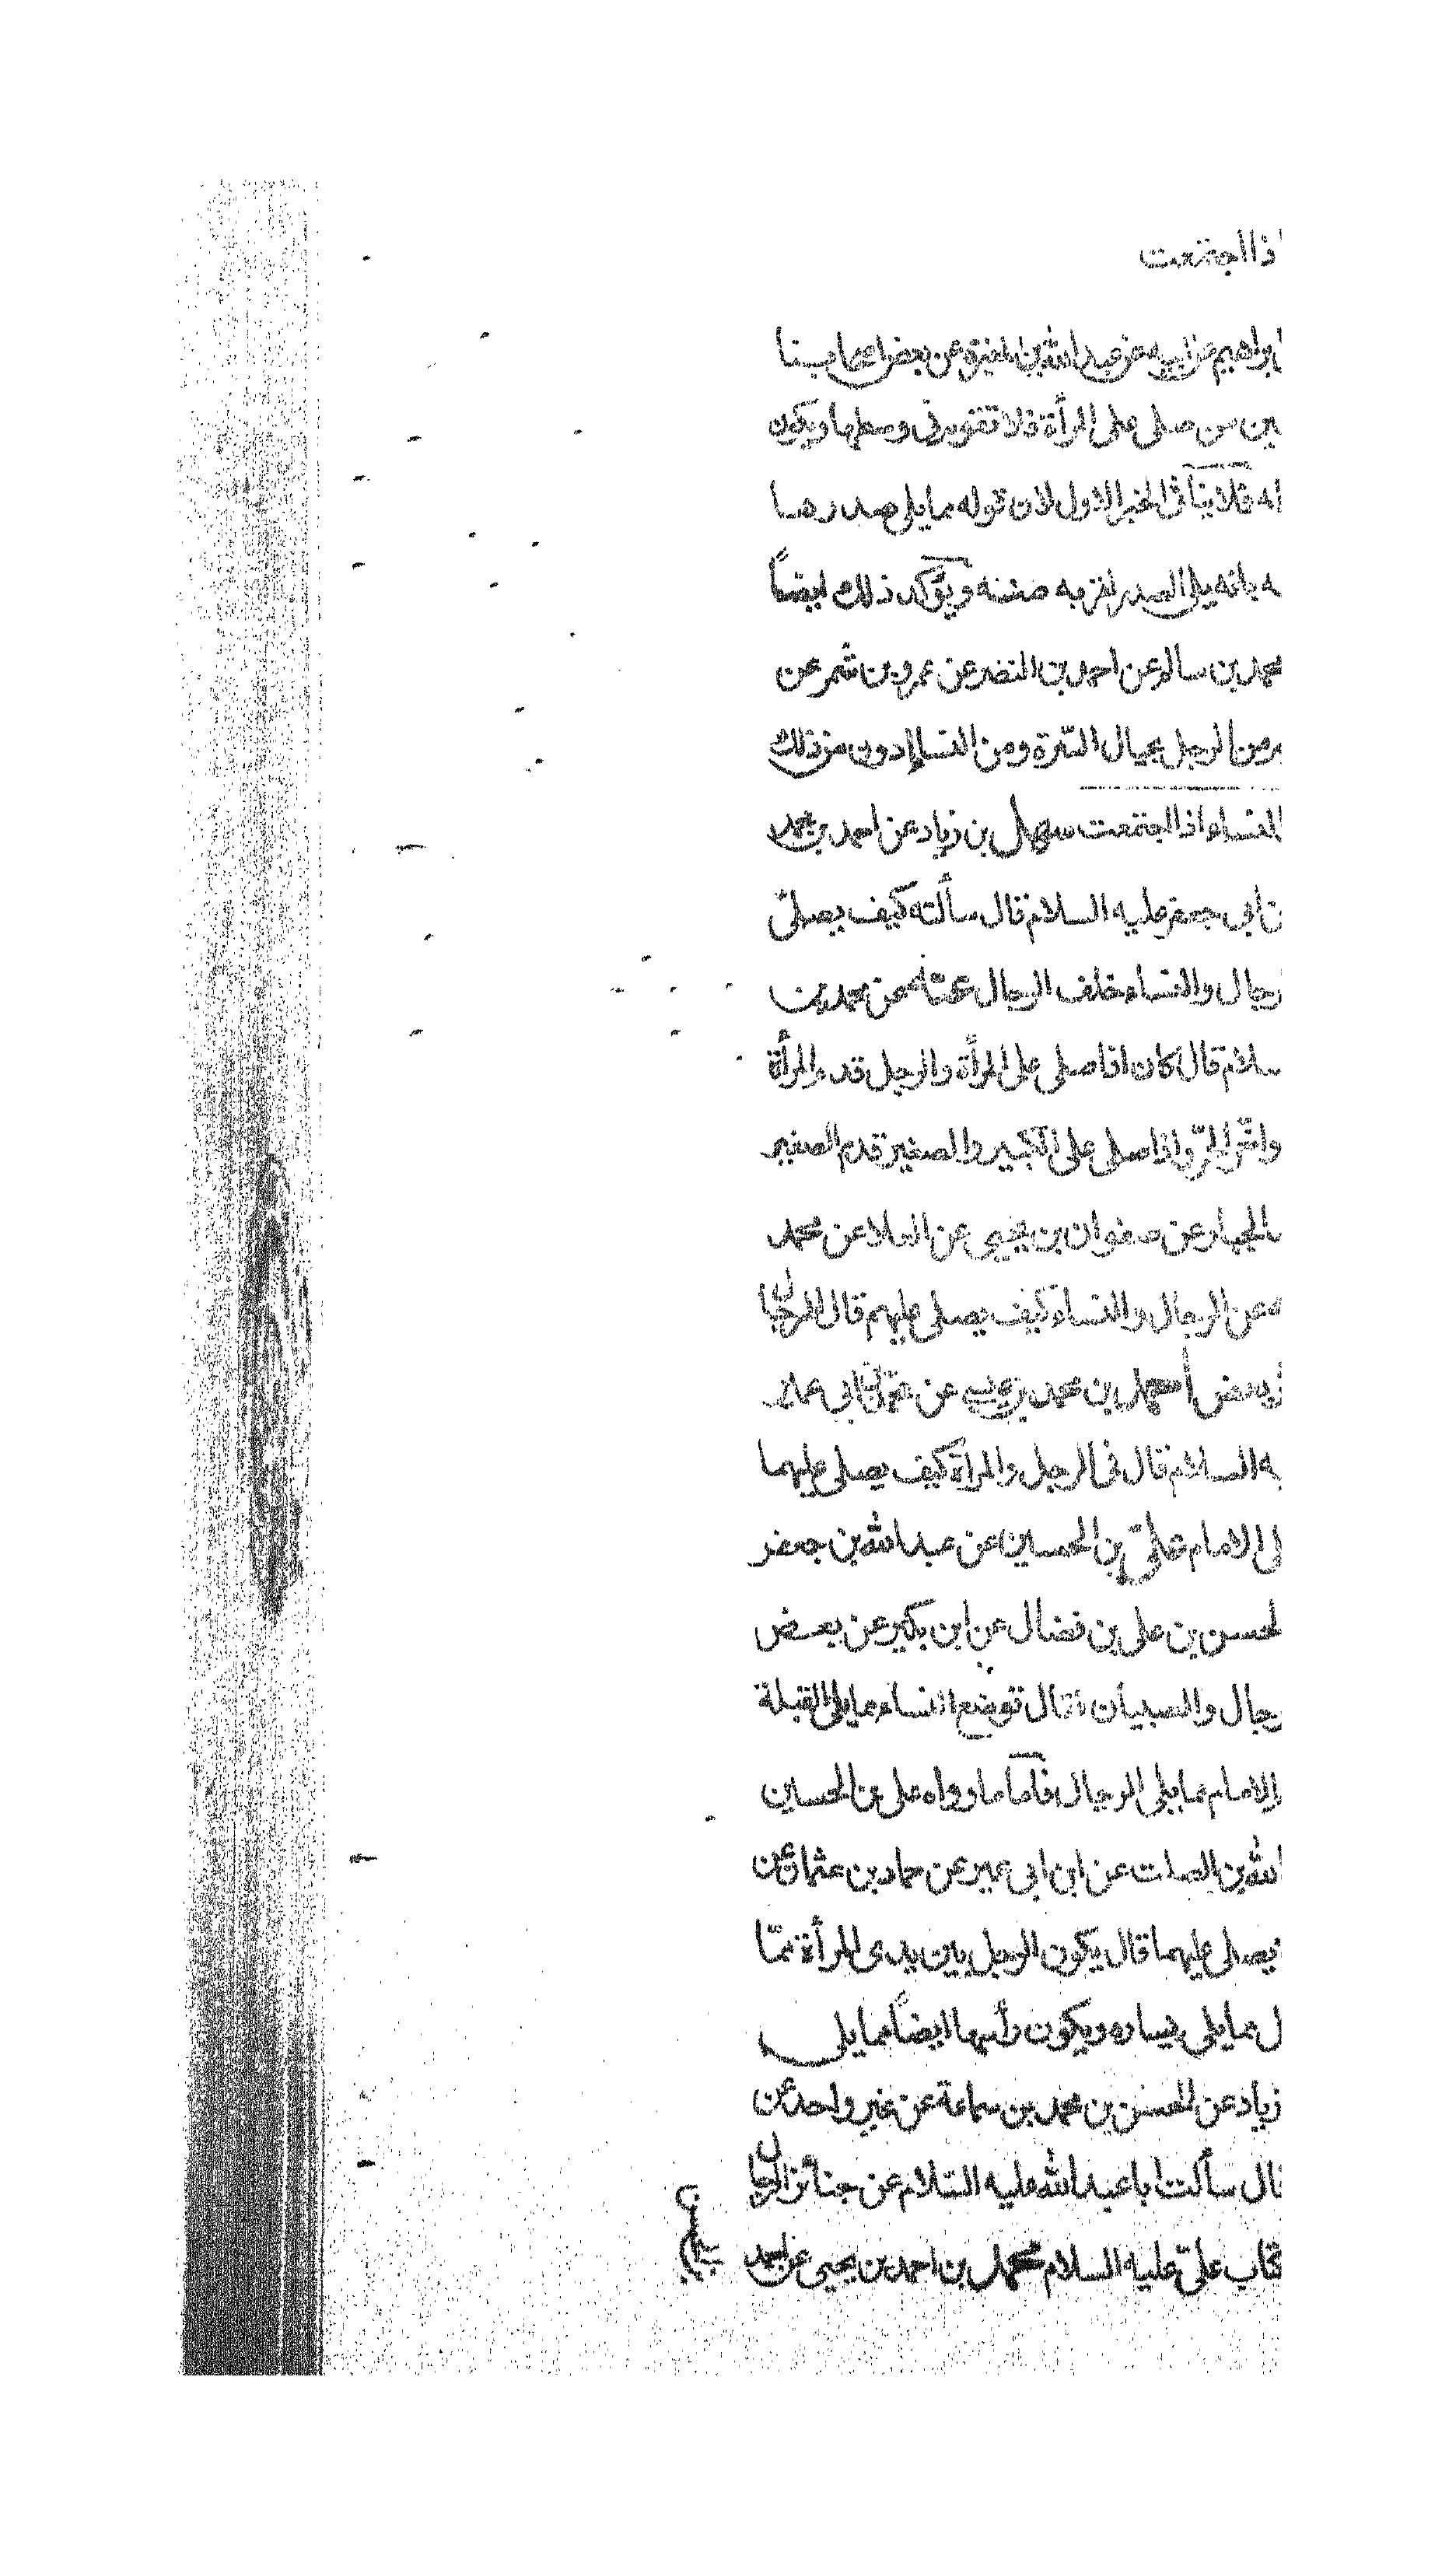 اذا اجتمعت
ابراهيم عن ابيه عن عبد الله بن المغيرة عن بعض اصحابنا
ين من صلى على المرأة فلا تقوم في وسطها ويكون
له فلا ينافى الخبر الاول لان قوله مما يلي صدرها
ه بانه يلي الصدر لقربه منه ويؤكد ذلك ايضاً
محمد بن سالم عن احمد بن النضر عن عمرو بن شمر عن
من الرجل بحيال السّرة ومن النساء ادون من ذلك
النساء اذا اجتمعت سهل بن زياد عن احمد بن محمد
ن ابي جعفر عليه السلام قال سألته كيف يصلّى
رجال والنساء خلف الرجال عنه عن محمد بن
سلام قال كان اذا صلى على المرأة والرجل قدم المرأة
واخّر الحرّ واذا صلى على الكبير والصغير قدم الصغير
الجبار عن صفوان بن يحيى عن العلا عن محمد
ه عن الرجال والنساء كيف يصلى عليهم قال الرجال
بعض احمد بن محمد بن عيسى عن عثمان ابي علي
ه السلام قال في الرجل والمرأة كيف يصلى عليهما
لى الامام عليّ بن الحسين عن عبد الله بن جعفر
لحسن بن علي بن فضال عن ابن بكير عن بعض
رجال والصبيان قال توضع النساء مما يلي القبلة
الامام مما يلي الرجال فاما ما رواه علي بن الحسين
الله بن الصلت عن ابن ابي عمير عن حماد بن عثمان عن
يصلى عليهما قال يكون الرجل بين يدى المرأة ممّا
ل مما يلي يساره ويكون رأسها ايضاً مما يلي
زياد عن الحسن بن محمد بن سماعة عن غير واحد عن
قال سألت ابا عبد الله عليه السّلام عن جنائز الرجال
كتاب عليّ عليه السلام محمد بن احمد بن يحيى عن احمد